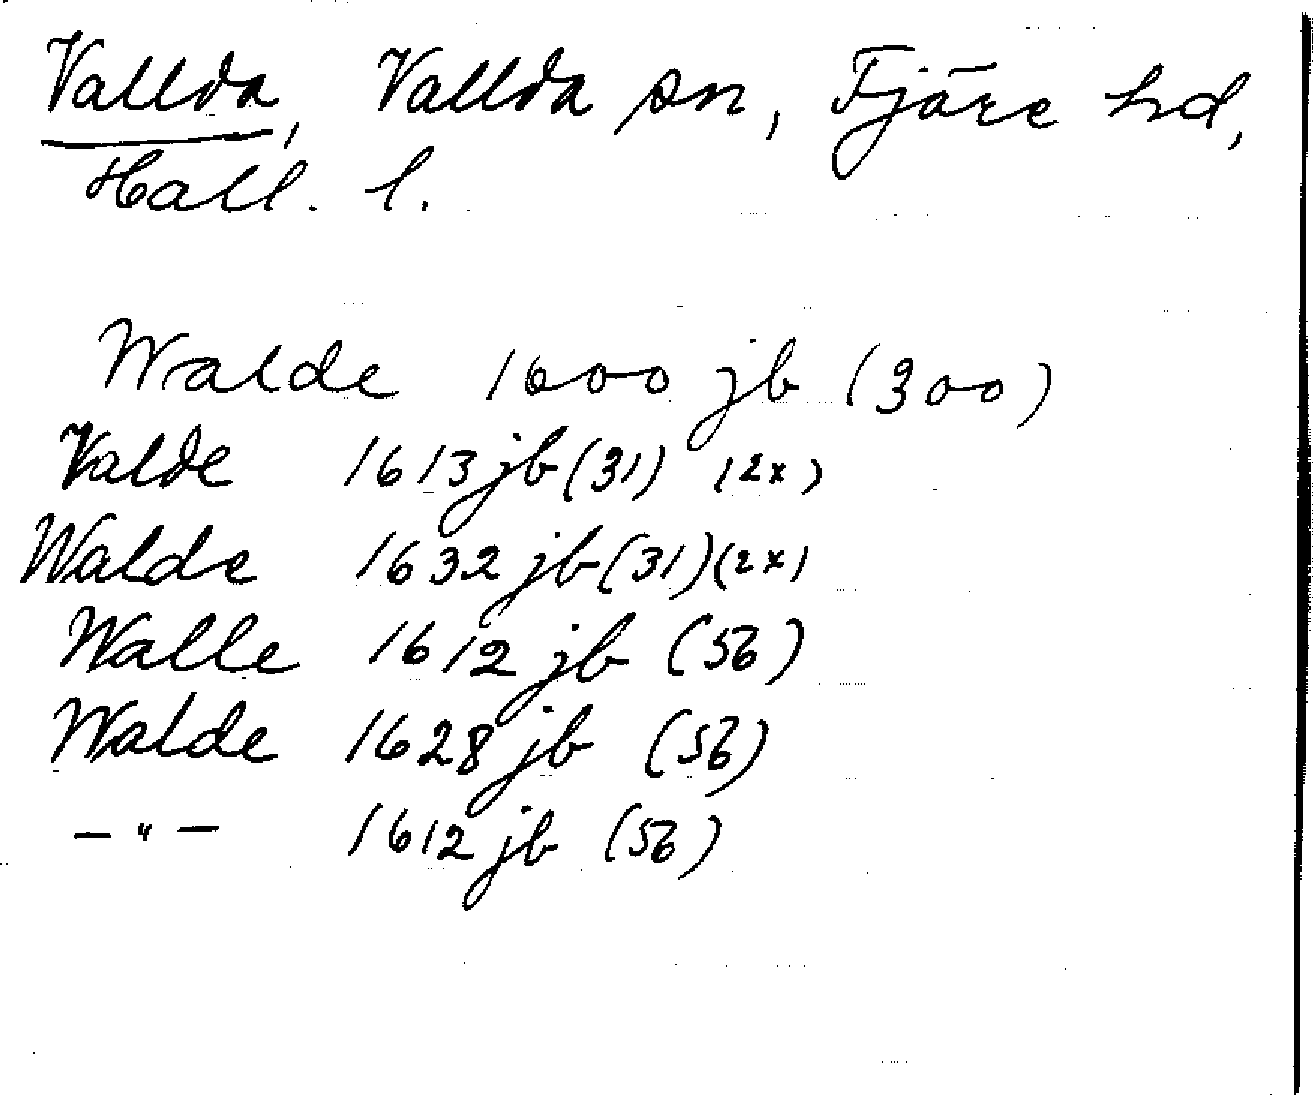 Vallda, Vallda sn, Fjäre hd,
Hall. l.
Walde 1600 jb (300)
Valde 1613 jb (31) (2x)
Walde 1632 jb (31) (2x)
Walle 1612 jb (56)
Walde 1628 jb (56)
— " — 1612 jb (56)